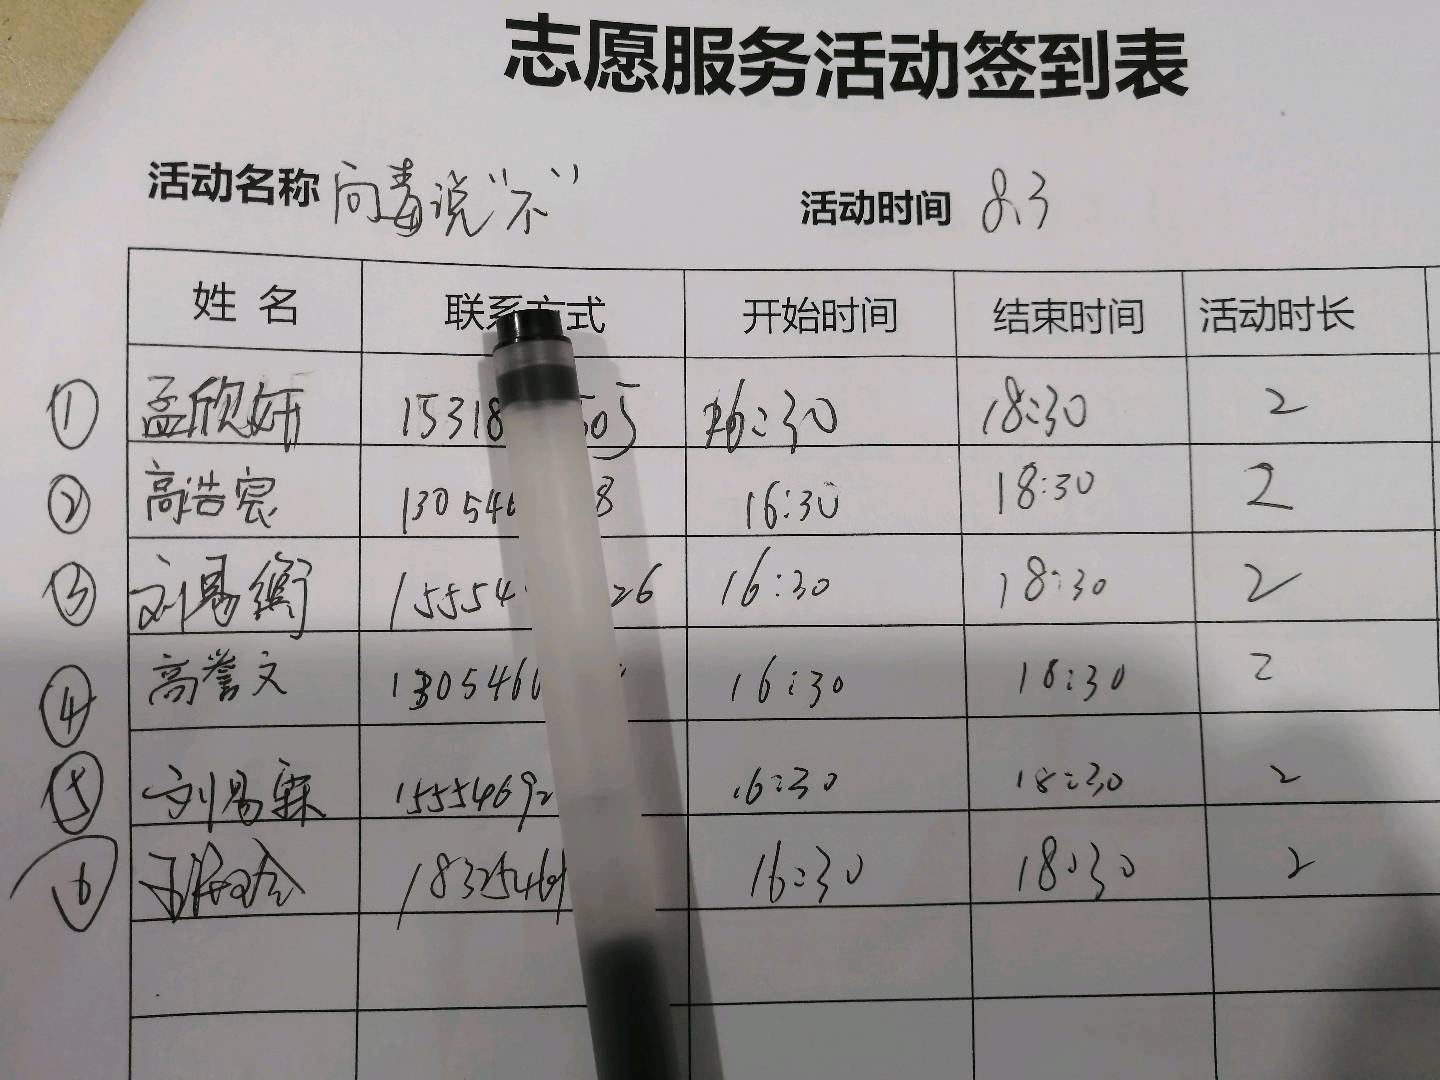 志愿服务活动签到表
活动名称 向毒说“不” 活动时间 8.3
姓名 联系方式 开始时间 结束时间 活动时长
① 孟欣妍 15318 505 16:30 18:30 2
② 高浩宸 13054 8 16:30 18:30 2
③ 刘易衡 15554 26 16:30 18:30 2
④ 高誉文 1305460 16:30 18:30 2
⑤ 刘易霖 15554692 16:30 18:30 2
⑥ 18325461 16:30 18:30 2